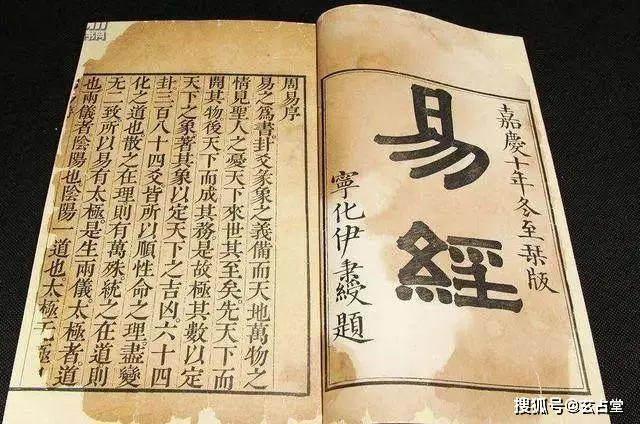 嘉慶十年冬至琹版
易經
寧化伊秉綬題
周易序
易之爲書卦爻彖象之義備而天地萬物之
情見聖人之憂天下來世其至矣。先天下而
開其物後天下而成其務。是故極其數以定
天下之象著其象以定天下之吉凶六十四
卦三百八十四爻皆所以順性命之理。盡變
化之道也散之在理則有萬殊。統之在道則
无二致所以易有太極。是生兩儀。太極者道
也兩儀者陰陽也陰陽一道也太極无極
搜狐号@玄占堂